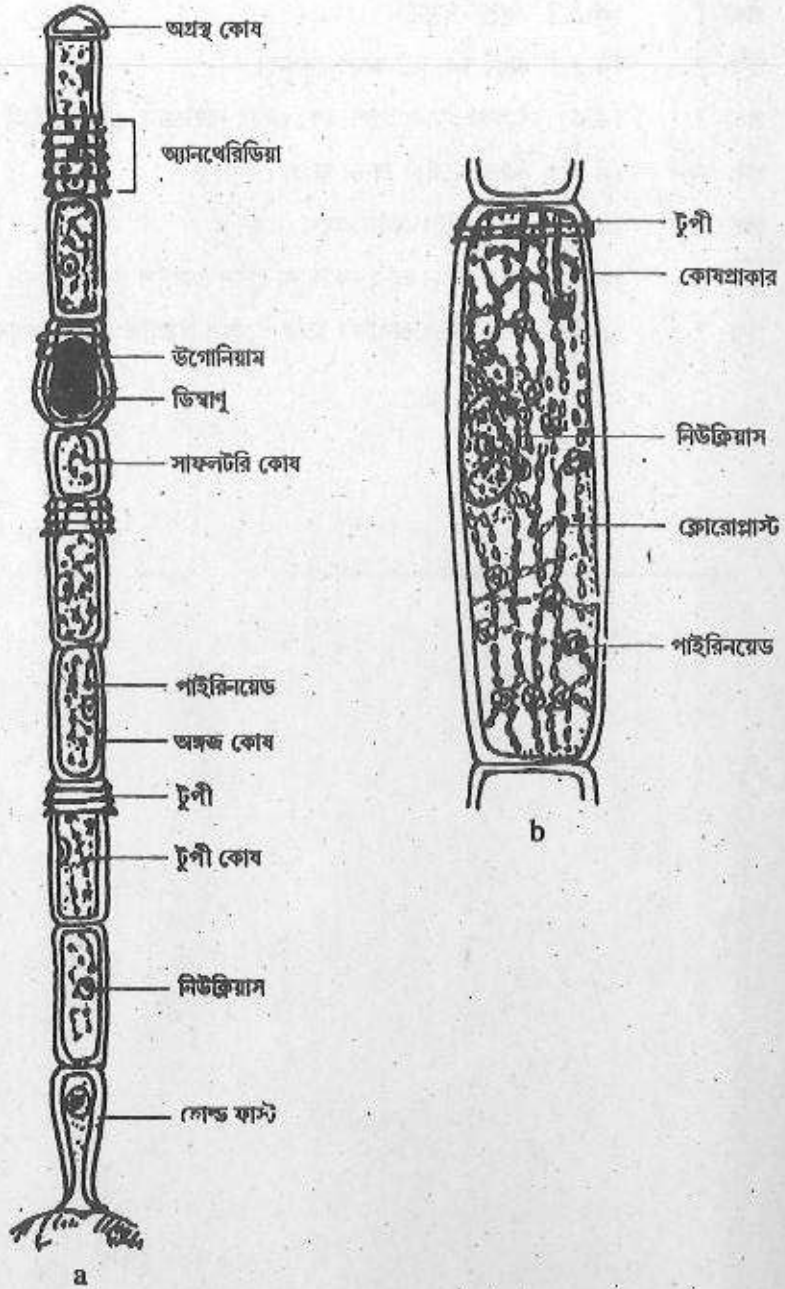 অগ্রস্থ কোষ
অ্যানথেরিডিয়া
উগোনিয়াম
ডিম্বাণু
সাফলটরি কোষ
পাইরিনয়েড
অঙ্গজ কোষ
টুপী
টুপী কোষ
নিউক্লিয়াস
হোল্ড ফাস্ট
a
টুপী
কোষপ্রাকার
নিউক্লিয়াস
ক্লোরোপ্লাস্ট
পাইরিনয়েড
b